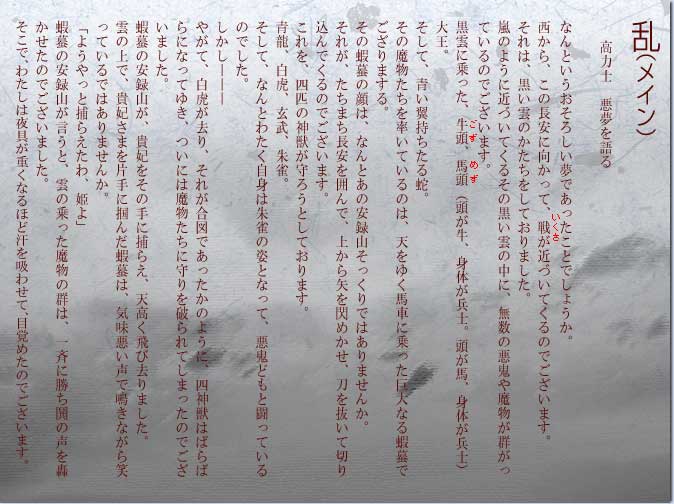 乱（メイン）
高力士　悪夢を語る
なんというおそろしい夢であったことでしょうか。
西から、この長安に向かって、戦が近づいてくるのでございます。
いくさ
それは、黒い雲のかたちをしておりました。
嵐のように近づいてくるその黒い雲の中に、無数の悪鬼や魔物が群がっ
ているのでございます。
黒雲に乗った、牛頭、馬頭（頭が牛、身体が兵士。頭が馬、身体が兵士）
ごず　めず
大王。
そして、青い翼持ちたる蛇。
その魔物たちを率いているのは、天をゆく馬車に乗った巨大なる蝦蟇で
ござりまする。
その蝦蟇の顔は、なんとあの安録山そっくりではありませんか。
それが、たちまち長安を囲んで、上から矢を閃めかせ、刀を抜いて切り
込んでくるのでございます。
これを、四匹の神獣が守ろうとしております。
青龍、白虎、玄武、朱雀。
そして、なんとわたく自身は朱雀の姿となって、悪鬼どもと闘っている
のでした。
しかし――
やがて、白虎が去り、それが合図であったかのように、四神獣はばらば
らになってゆき、ついには魔物たちに守りを破られてしまったのでござ
いました。
蝦蟇の安録山が、貴妃をその手に捕らえ、天高く飛び去りました。
雲の上で、貴妃さまを片手に掴んだ蝦蟇は、気味悪い声で鳴きながら笑
っているではありませんか。
「ようやっと捕らえたわ、姫よ」
蝦蟇の安録山が言うと、雲の乗った魔物の群は、一斉に勝ち鬨の声を轟
かせたのでございました。
そこで、わたしは夜具が重くなるほど汗を吸わせて、目覚めたのでございます。